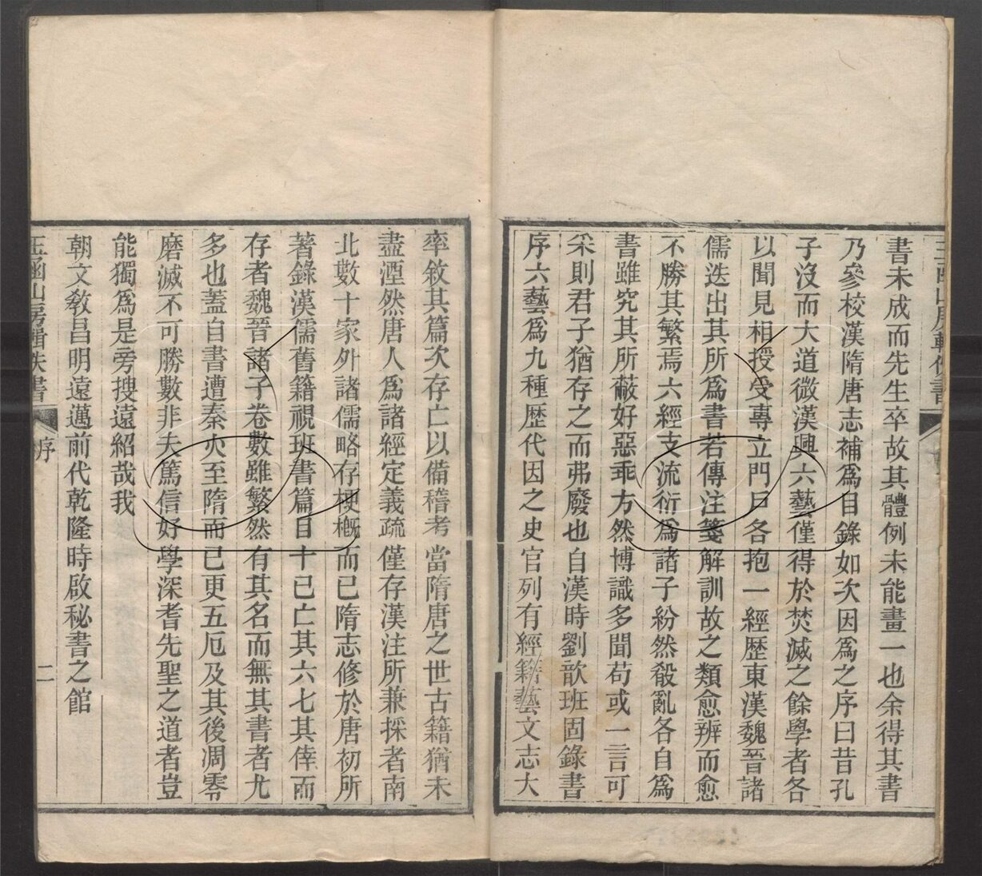 玉函山房輯佚書
書未成而先生卒故其體例未能畫一也余得其書
乃參校漢隋唐志補爲目錄如次因爲之序曰昔孔
子沒而大道微漢興六藝僅得於焚滅之餘學者各
以聞見相授受專立門戶各抱一經歷東漢魏晉諸
儒迭出其所爲書若傳注箋解訓故之類愈辨而愈
不勝其繁焉六經支流衍爲諸子紛然殽亂各自爲
書雖究其所蔽好惡乖方然博識多聞苟或一言可
采則君子猶存之而弗廢也自漢時劉歆班固錄書
序六藝爲九種歷代因之史官列有經籍藝文志大
率敘其篇次存亡以備稽考當隋唐之世古籍猶未
盡湮然唐人爲諸經定義疏僅存漢注所兼採者南
北數十家外諸儒略存梗概而已隋志修於唐初所
著錄漢儒舊籍視班書篇目十已亡其六七其倖而
存者魏晉諸子卷數雖繁然有其名而無其書者尤
多也蓋自書遭秦火至隋而已更五厄及其後凋零
磨滅不可勝數非夫篤信好學深耆先聖之道者豈
能獨爲是旁搜遠紹哉我
朝文敎昌明遠邁前代乾隆時啟秘書之館
玉函山房輯佚書 序 二